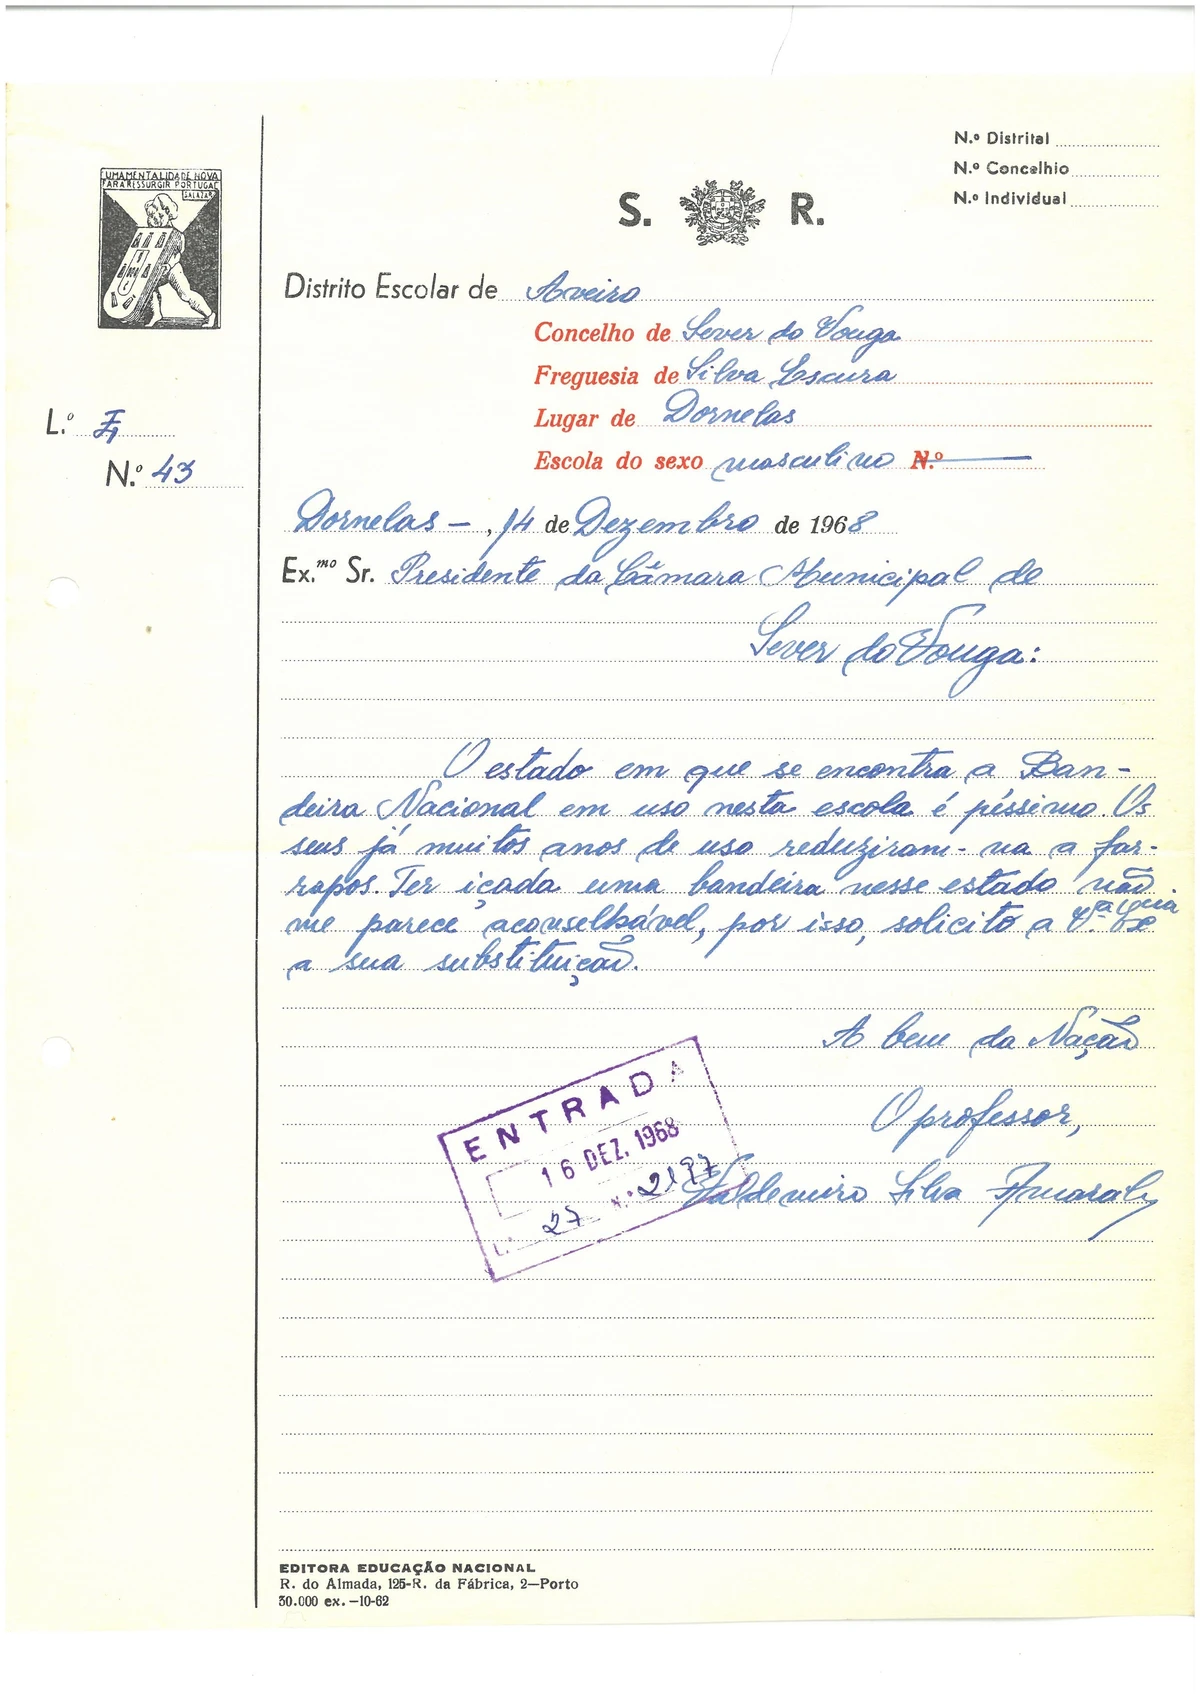 N.º Distrital
N.º Concelhio
N.º Individual
UMA MENTALIDADE NOVA
FARÁ RESSURGIR PORTUGAL
SALAZAR
S. R.
Distrito Escolar de Aveiro
Concelho de Sever do Vouga
Freguesia de Silva Escura
Lugar de Dornelas
Escola do sexo masculino N.º
L.º
N.º 43
Dornelas - , 14 de Dezembro de 1968
Ex.mo Sr. Presidente da Câmara Municipal de
Sever do Vouga:
O estado em que se encontra a Ban-
deira Nacional em uso nesta escola é péssimo. Os
seus já muitos anos de uso reduziram-na a far-
rapos. Ter içada uma bandeira nesse estado não
me parece aconselhável, por isso, solicito a V.ª Ex.cia
a sua substituição.
A bem da Nação
O professor,
Valdemiro Silva Amaral
ENTRADA
16 DEZ. 1968
L.º 27 N.º 2177
EDITORA EDUCAÇÃO NACIONAL
R. do Almada, 125-R. da Fábrica, 2—Porto
30.000 ex. —10-62